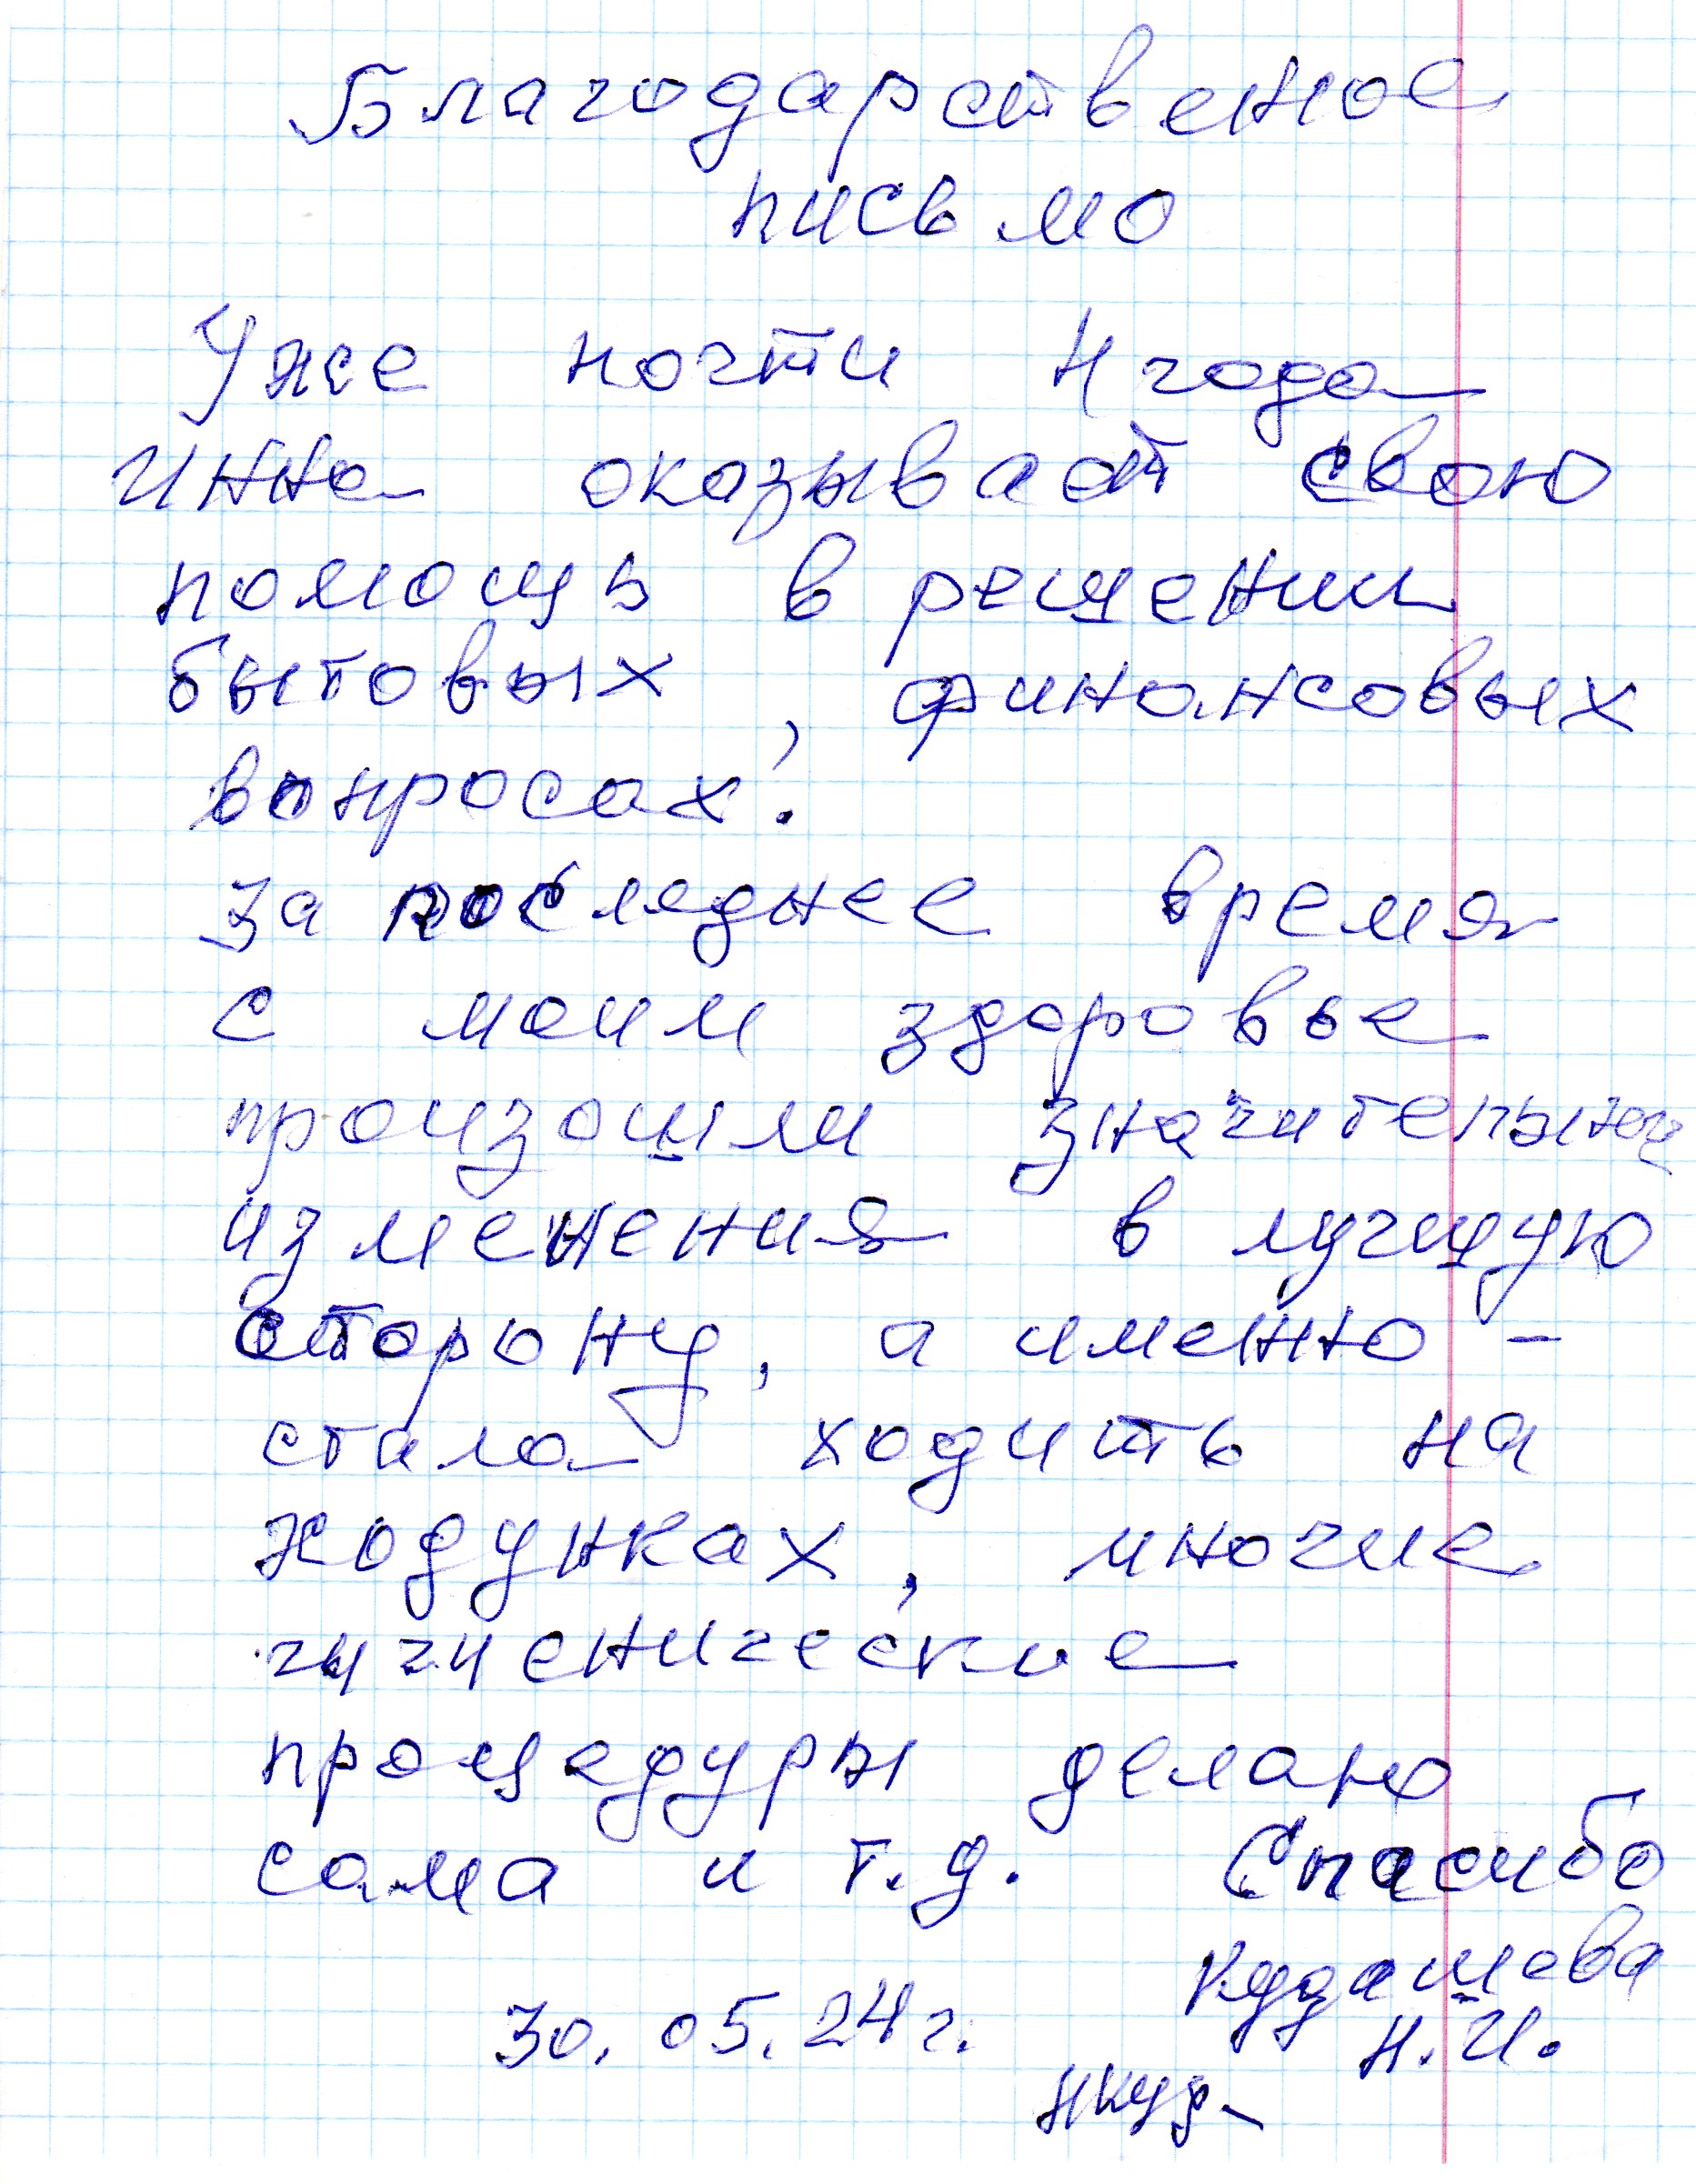 Благодарственое
письмо
Уже почти 4 года
Инна оказывает свою
помощь в решении
бытовых, финансовых
вопросах.
За последнее время
с моим здоровье
произошли значительные
изменения в лучшую
сторону, а именно -
стала ходить на
ходунках, многие
гигиенические
процедуры делаю
сама и т.д. Спасибо
Кудашова
30.05.24 г. Н.И.